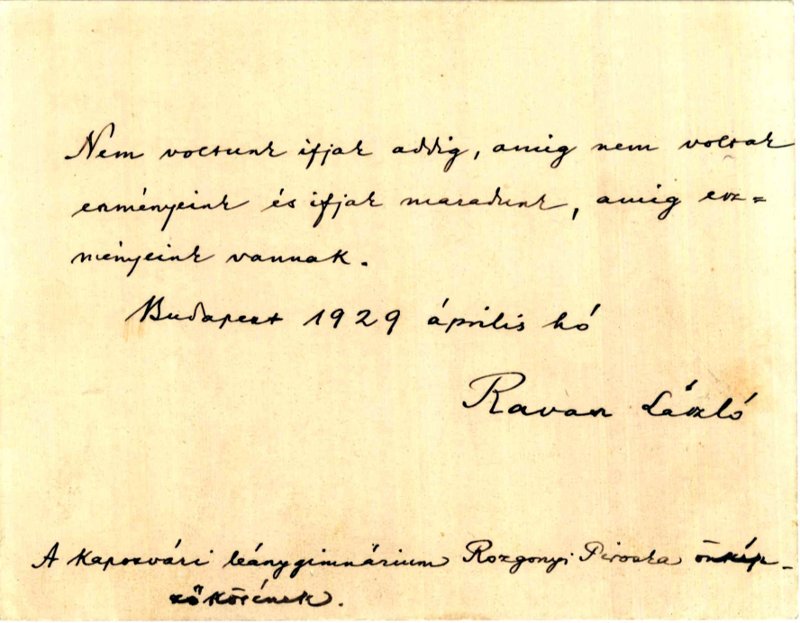 Nem voltunk ifjak addig, amig nem voltak
eszményeink és ifjak maradunk, amig esz=
ményeink vannak.
Budapest 1929 április hó
Ravasz László
A kaposvári leánygimnázium Rozgonyi Piroska önkép-
zőkörének.